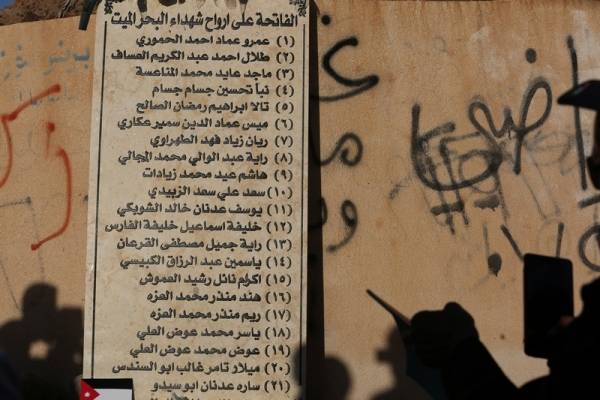 الفاتحة على ارواح شهداء البحر الميت
(١) عمرو عماد احمد الحموري
(٢) طلال احمد عبد الكريم العساف
(٣) ماجد عايد محمد المناعسة
(٤) نبأ تحسين جسام جسام
(٥) تالا ابراهيم رمضان الصالح
(٦) ميس عماد الدين سمير عكاري
(٧) ريان زياد فهد الطهراوي
(٨) راية عبد الوالي محمد المجالي
(٩) هاشم عيد محمد زيادات
(١٠) سعد علي سعد الزبيدي
(١١) يوسف عدنان خالد الشوبكي
(١٢) خليفة اسماعيل خليفة الفارس
(١٣) راية جميل مصطفى القرعان
(١٤) ياسمين عبد الرزاق الكبيسي
(١٥) اكرام نائل رشيد العموش
(١٦) هند منذر محمد العزه
(١٧) ريم منذر محمد العزه
(١٨) ياسر محمد عوض العلي
(١٩) عوض محمد عوض العلي
(٢٠) ميلار تامر غالب ابو السندس
(٢١) ساره عدنان ابو سيدو